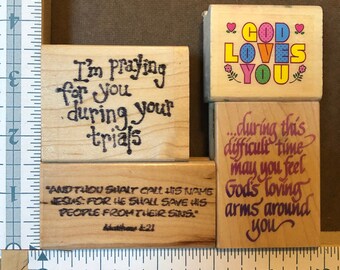 I'm praying
for you
during your
trials
GOD
LOVES
YOU
"AND THOU SHALT CALL HIS NAME
JESUS: FOR HE SHALL SAVE HIS
PEOPLE FROM THEIR SINS."
Matthew 1:21
...during this
difficult time
may you feel
God's loving
arms around
you